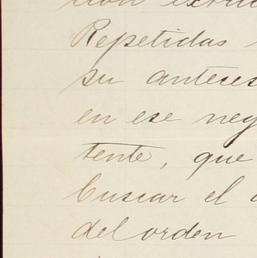 Repetidas
su anteces
en ese neg
tente, que
buscar el
del orden